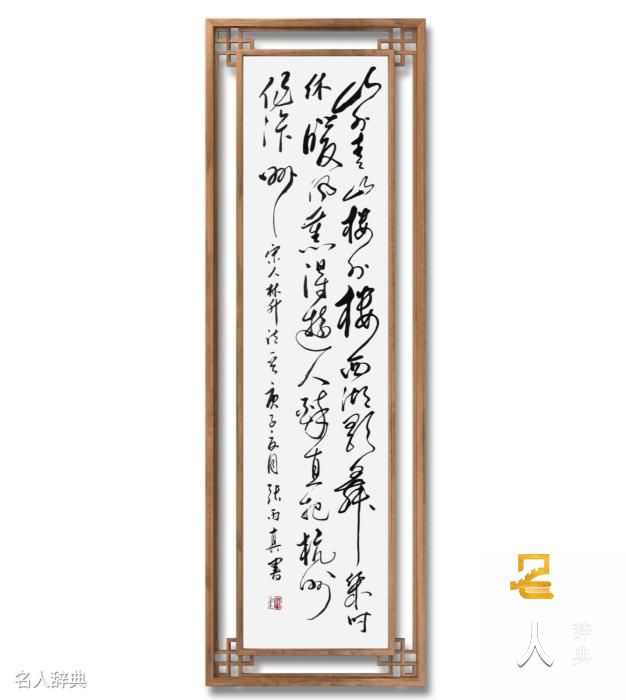 山外青山楼外楼西湖歌舞幾时
休暖风薰得遊人醉直把杭州
作汴州
宋人林升诗一首庚子夏月张雨真書
名人辞典
名人辞典